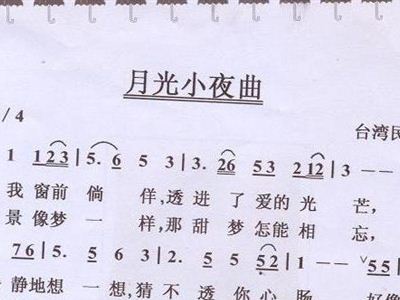 月光小夜曲
/ 4
台湾民
1 1 2 3 | 5. 6 5 3 | 3. 2 6 5 3 2 1 2 | 3 -
我 窗前 倘 佯,透 进 了 爱的 光 芒,
景 像梦 一 样,那 甜 梦 怎能 相 忘,
7 6 | 5. 3 5 6 0 5 5 2 | 1 - - 5 5
静地 想 一 想,猜 不 透 你 心 肠